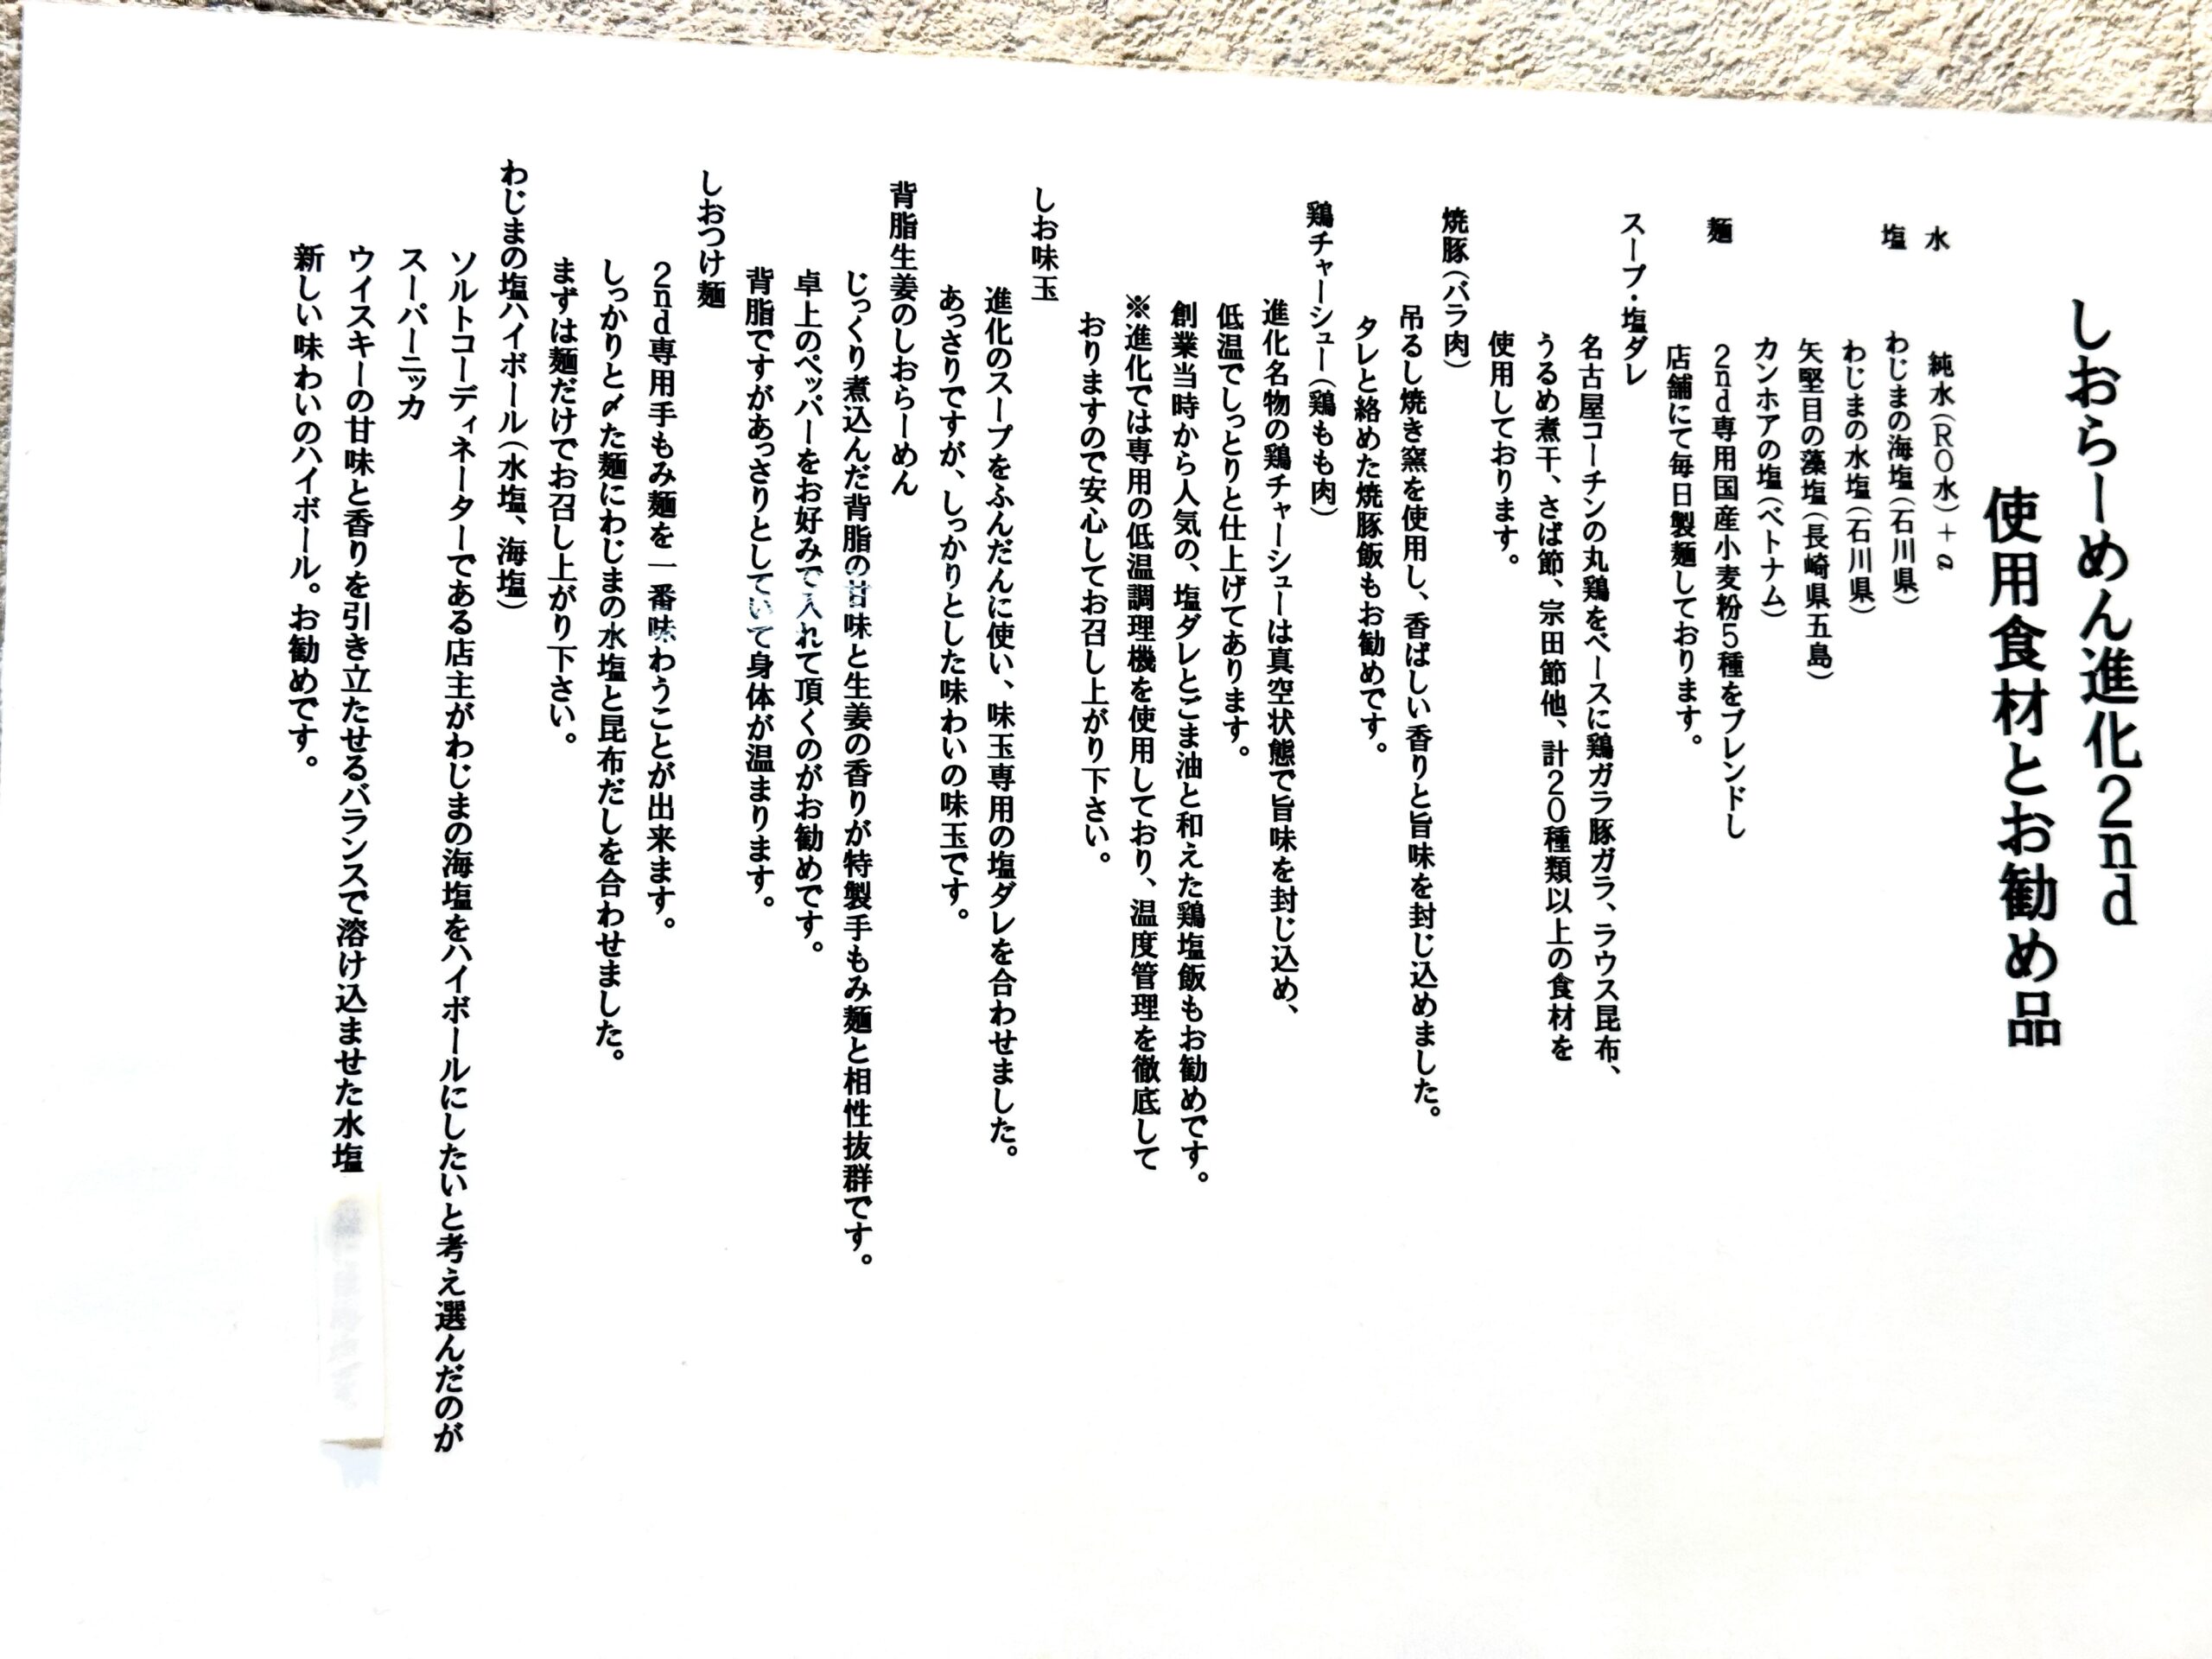 しおらーめん進化2nd
使用食材とお勧め品
水　純水(RO水)+α
塩　わじまの海塩(石川県)
わじまの水塩(石川県)
矢堅目の藻塩(長崎県五島)
カンホアの塩(ベトナム)
麺　2nd専用国産小麦粉5種をブレンドし
店舗にて毎日製麺しております。
スープ・塩ダレ
名古屋コーチンの丸鶏をベースに鶏ガラ豚ガラ、ラウス昆布、
うるめ煮干、さば節、宗田節他、計20種類以上の食材を
使用しております。
焼豚(バラ肉)
吊るし焼き窯を使用し、香ばしい香りと旨味を封じ込めました。
タレと絡めた焼豚飯もお勧めです。
鶏チャーシュー(鶏もも肉)
進化名物の鶏チャーシューは真空状態で旨味を封じ込め、
低温でしっとりと仕上げてあります。
創業当時から人気の、塩ダレとごま油と和えた鶏塩飯もお勧めです。
※進化では専用の低温調理機を使用しており、温度管理を徹底して
おりますので安心してお召し上がり下さい。
しお味玉
進化のスープをふんだんに使い、味玉専用の塩ダレを合わせました。
あっさりですが、しっかりとした味わいの味玉です。
背脂生姜のしおらーめん
じっくり煮込んだ背脂の甘味と生姜の香りが特製手もみ麺と相性抜群です。
卓上のペッパーをお好みで入れて頂くのがお勧めです。
背脂ですがあっさりとしていて身体が温まります。
しおつけ麺
2nd専用手もみ麺を一番味わうことが出来ます。
しっかりと〆た麺にわじまの水塩と昆布だしを合わせました。
まずは麺だけでお召し上がり下さい。
わじまの塩ハイボール(水塩、海塩)
ソルトコーディネーターである店主がわじまの海塩をハイボールにしたいと考え選んだのが
スーパーニッカ
ウイスキーの甘味と香りを引き立たせるバランスで溶け込ませた水塩
新しい味わいのハイボール。お勧めです。